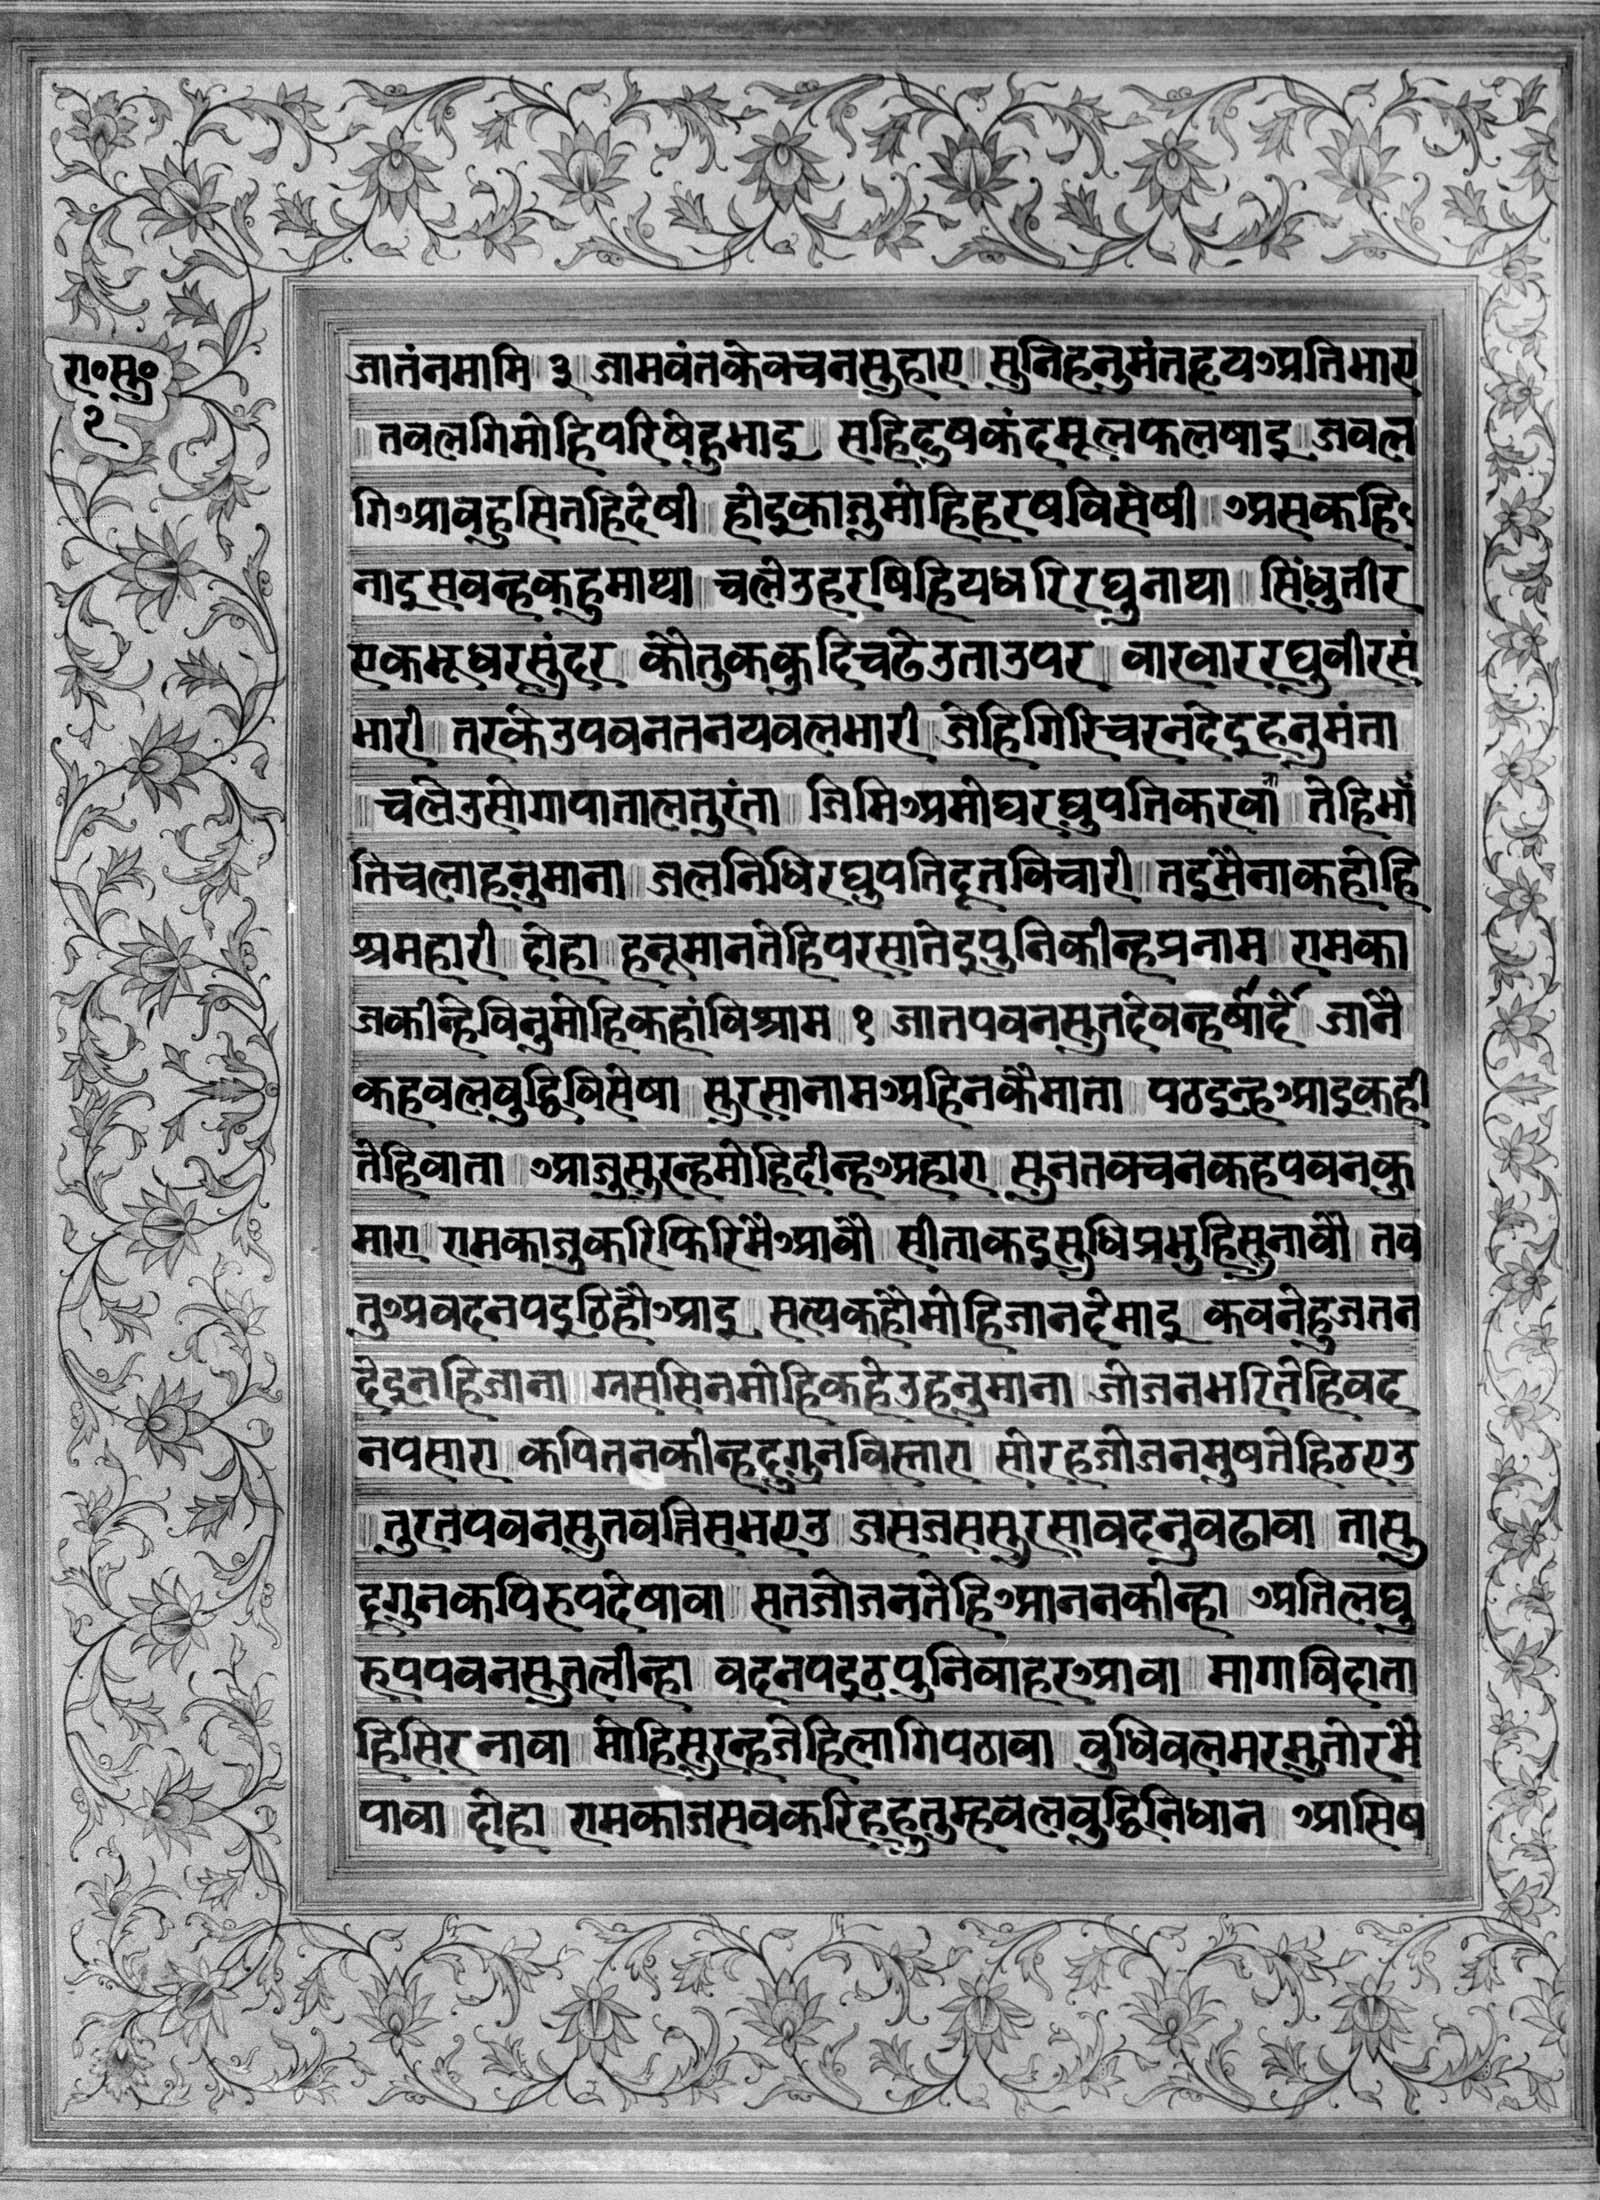 रा०सु०
२
जातंनमामि ३ जामवंतकेवचनसुहाए सुनिहनुमंतहृदयअतिभाए
तवलगिमोहिपरिषेहुभाई सहिदुषकंदमूलफलषाई जवल
गिआवहुसितहिदेषी होइकाजुमोहिहरषविसेषी असकहि
नाइसवन्हकहुमाथा चलेउहरषिहियधरिरघुनाथा सिंधुतीर
एकभूधरसुंदर कौतुककुदिचढेउताउपर वारवाररघुवीरसं
भारी तरकेउपवनतनयवलभारी जेहिगिरिचरनदेइहनुमंता
चलेउसोगापातालतुरंता जिमिअमोघरघुपतिकरवाना तेहिभाँ
तिचलाहनुमाना जलनिधिरघुपतिदूतविचारी तइमैनाकहोहि
श्रमहारी दोहा हनूमानतेहिपरसातेइपुनिकीन्हप्रनाम रामका
जकीन्हेविनुमोहिकहांविश्राम १ जातपवनसुतदेवन्हर्षादे जानै
कहवलवुद्धिविसेषा सुरसानामअहिनकैमाता पठइन्हआइकही
तेहिवाता आजुसुरन्हमोहिदीन्हअहारा सुनतवचनकहपवनकु
मारा रामकाजुकरिफिरिमैआवौ सीताकइसुधिप्रभुहिसुनावौ तव
तुअवदनपइठिहौआई सत्यकहौमोहिजानदेमाई कवनेहुजतन
देइनहिजाना ग्रससिनमोहिकहेउहनुमाना जोजनभरितेहिवद
नपसारा कपितनकीन्हदुगुनविस्तारा सोरहजोजनमुषतेहिठएउ
तुरतपवनसुतवत्तिसभएउ जसजससुरसावदनुवढावा तासु
दूगुनकपिरुपदेषावा सतजोजनतेहिआननकीन्हा अतिलघु
रुपपवनसुतलीन्हा वदनपइठपुनिवाहरआवा मागाविदाता
हिसिरनावा मोहिसुरन्हजेहिलागिपठावा वुधिवलमरमुतोरमै
पावा दोहा रामकाजसवकरिहहुतुम्हवलवुद्धिनिधान आसिष